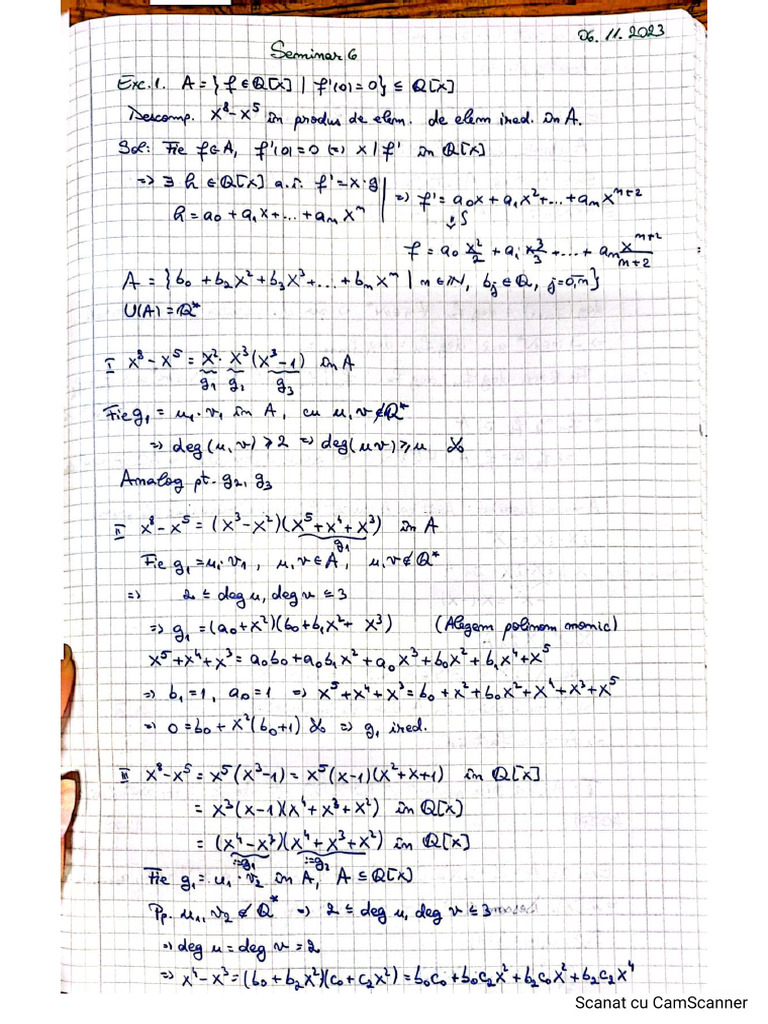 06.11.2023
Seminar 6
Exc.1. A = {f ∈ Q[x] | f'(0) = 0} ≤ Q[x]
Descomp. x⁸ - x⁵ în produs de elem. de elem ired. în A.
Sol: Fie f∈A, f'(0)=0 (=) x | f' în Q[x]
=> ∃ h ∈ Q[x] a.î. f' = x·g | => f' = a₀x + a₁x² + ... + aₘxⁿ⁺²
h = a₀ + a₁x + ... + aₘxᵐ | ↓ S
f = a₀ x²/2 + a₁ x³/3 + ... + aₙ xᵐ⁺²/m+2
A = {b₀ + b₂x² + b₃x³ + ... + bₘxᵐ | n ∈ N, bⱼ ∈ Q, j=0,n}
U(A) = Q*
I x⁸ - x⁵ = x² · x³ (x³ - 1) în A
g₁ g₂ g₃
Fie g₁ = u₁ · v₁ în A, cu u, v ∉ Q*
=> deg(u, v) ≥ 2 => deg(uv) ≥ u
Analog pt. g₂, g₃
II x⁸ - x⁵ = (x³ - x²)(x⁵ + x⁴ + x³) în A
g₁
Fie g₁ = u₁ · v₁, u, v ∈ A, u, v ∉ Q*
=> 2 ≤ deg u, deg v ≤ 3
=> g₁ = (a₀ + x²)(b₀ + b₁x² + x³) (Alegem polinom monic)
x⁵ + x⁴ + x³ = a₀b₀ + a₀b₁x² + a₀x³ + b₀x² + b₁x⁴ + x⁵
=> b₁ = 1, a₀ = 1 => x⁵ + x⁴ + x³ = b₀ + x² + b₀x² + x⁴ + x³ + x⁵
=> 0 = b₀ + x²(b₀+1) => g₁ ired.
III x⁸ - x⁵ = x⁵(x³ - 1) = x⁵(x-1)(x² + x + 1) în Q[x]
= x³(x-1)(x⁴ + x³ + x²) în Q[x]
= (x⁴ - x³)(x⁴ + x³ + x²) în Q[x]
:=g₁ :=g₂
Fie g₁ = u₁ · v₂ în A, A ≤ Q[x]
Pp. u₁, v₂ ∉ Q* => 2 ≤ deg u, deg v ≤ 3
=> deg u = deg v = 2
=> x⁴ - x³ = (b₀ + b₂x²)(c₀ + c₂x²) = b₀c₀ + b₀c₂x² + b₂c₀x² + b₂c₂x⁴
Scanat cu CamScanner